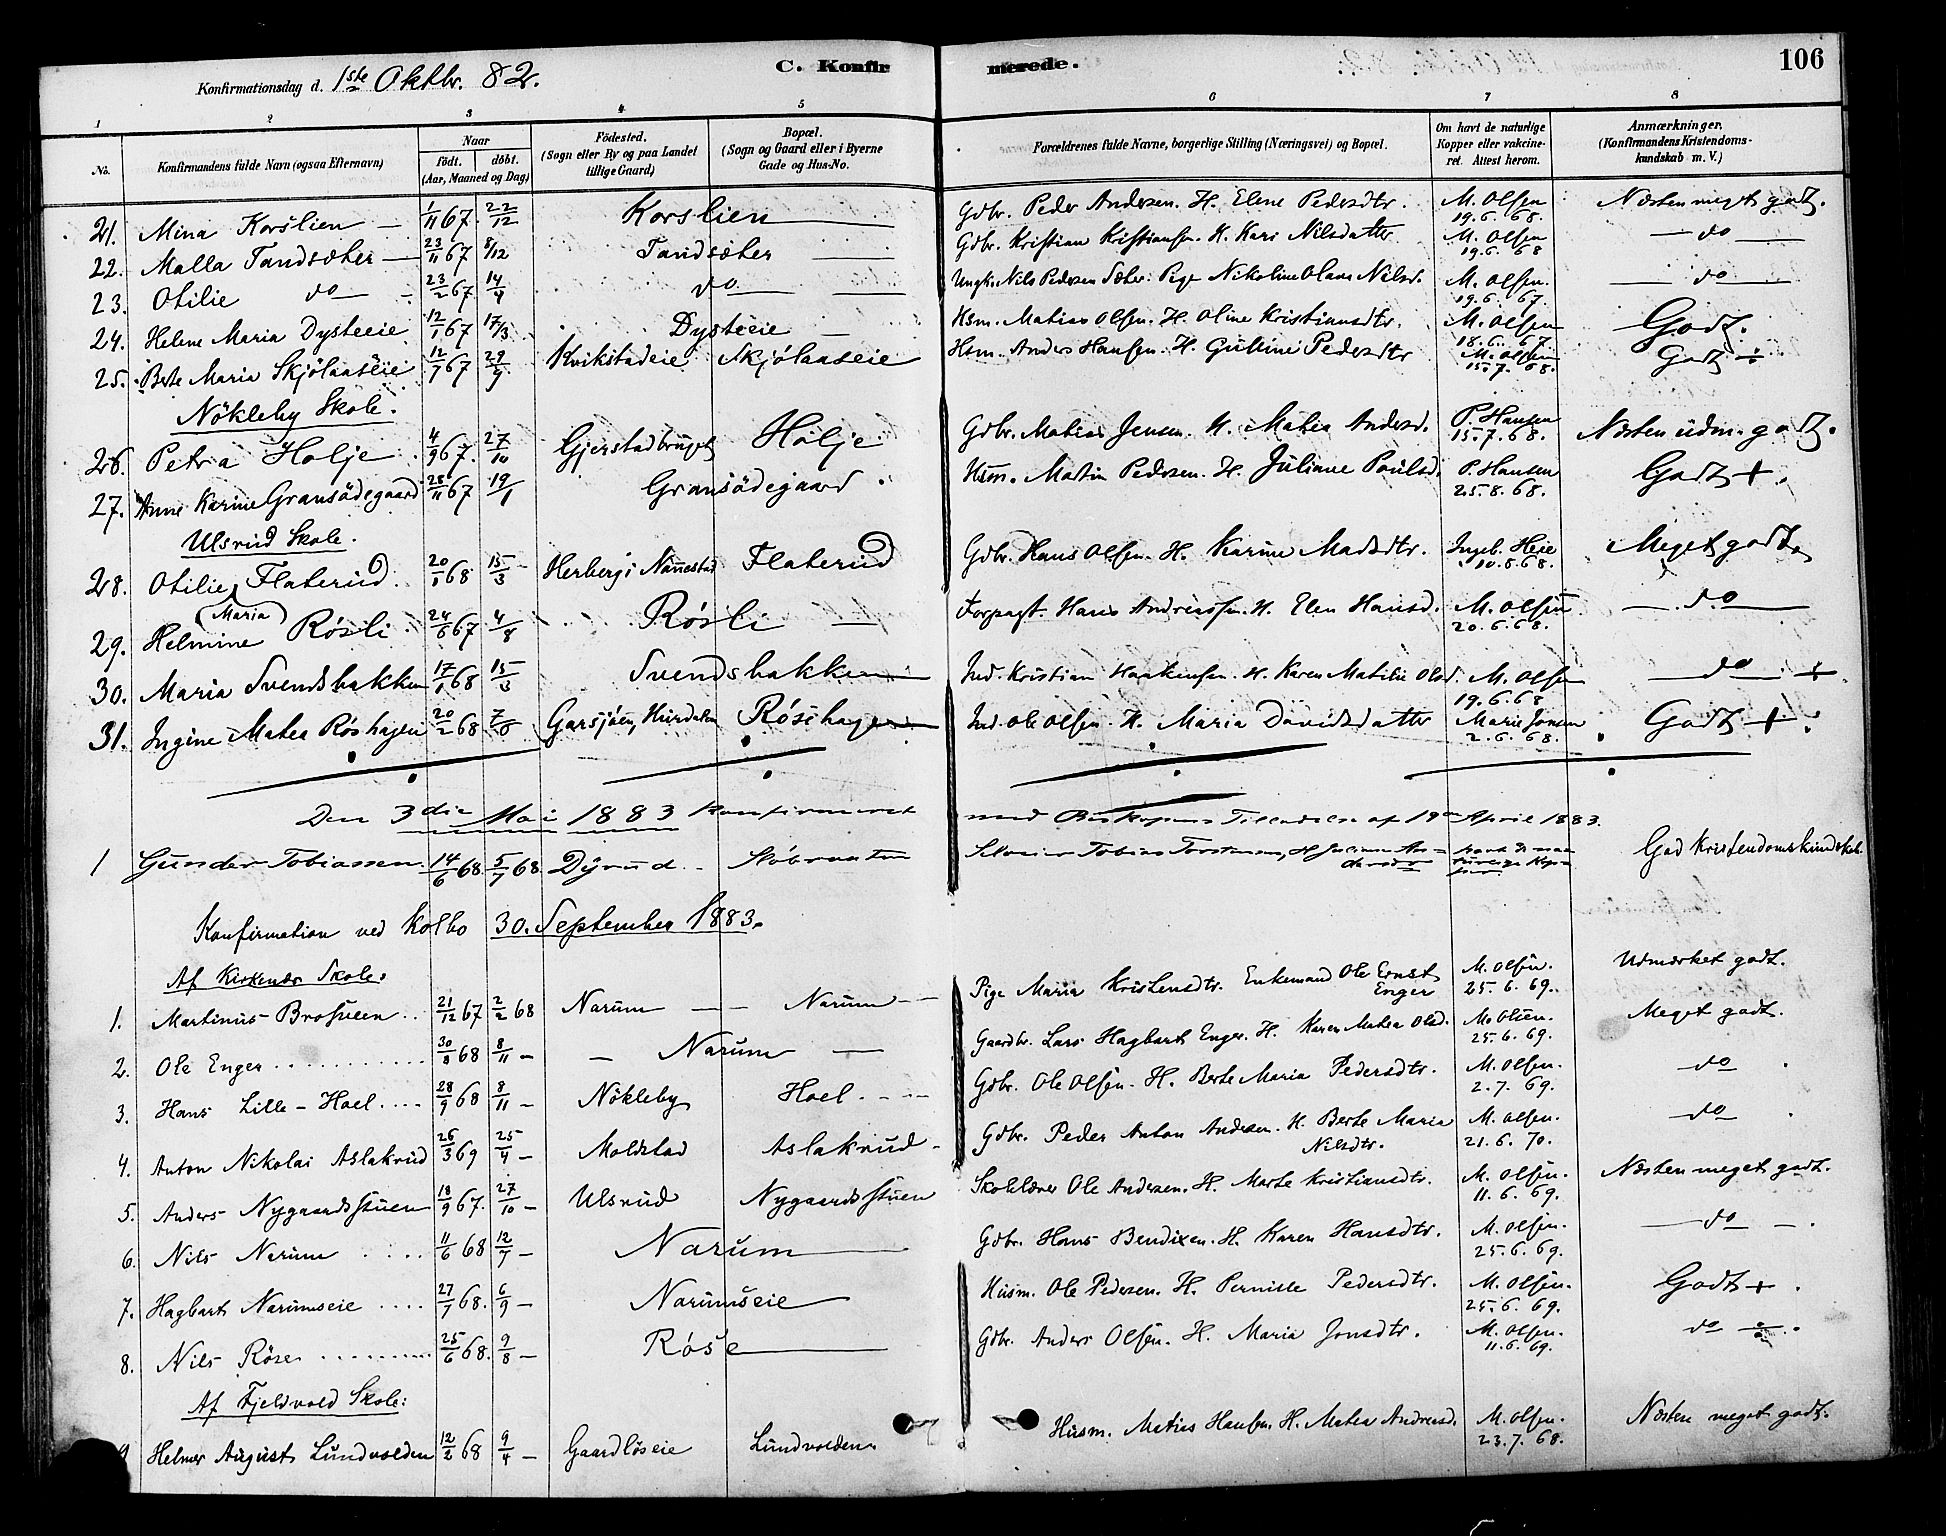 Konfirmationsdag d. 1ste Oktbr. 82. C. Konfirmerede. 106
1 2 3 4 5 6 7 8
No. Konfirmandens fulde Navn (ogsaa Efternavn) Naar født. døbt. (Aar, Maaned og Dag) Fødested. (Sogn eller By og paa Landet tillige Gaard) Bopæl. (Sogn og Gaard eller i Byerne Gade og Hus-No. Forældrenes fulde Navne, borgerlige Stilling (Næringsvei) og Bopæl. Om havt de naturlige Kopper eller vakcineret. Attest herom. Anmærkninger. (Konfirmandens Kristendomskundskab m. V.)
21. Mina Korslien 1/11 67. 22/12 Korslien Gdbr. Peder Andersen. H. Elene Pedersdtr. M. Olsen 19.6.68. Næsten meget godt.
22. Malla Tandsæther 23/11 67 8/12 Tandsæther Gdbr. Kristian Kristiansen. H. Kari Nilsdatter M. Olsen 19.6.68 do
23. Otilie do 23/2 67. 14/4 do Ungk. Nils Pedersen Sæther. Pige Nikoline Olava Nilsd. M. Olsen. 19.6.67. do
24. Helene Maria Dysteeie 12/1 67 17/3 Dysteeie Hsm. Matias Olsen. H. Oline Kristiansdtr. M. Olsen 18.6.67. Godt.
25. Berte Maria Skjölaaseie 12/7 67 29/9 Kvikstadeie Skjölaaseie Hsm. Anders Hansen. H. Gulline Pedersdtr M. Olsen 15.7.68. Godt ÷
Nökleby Skole.
26. Petra Holje 4/9 67. 27/10 Gjerstadbruget Holje Gdbr. Matias Jensen. H. Matea Andersd. P. Hansen 15.7.68. Næsten udm. godt.
27. Anne Karine Gransödegaard 28/11 67 19/1 Gransödegaard Husm. Martin Pedersen. H. Juliane Poulsd. P. Hansen 25.8.68. Godt +.
Ulsrud Skole.
28. Otilie Flaterud 20/1 68 15/3 Herberg i Nannestad Flaterud Gdbr. Hans Olsen. H. Karine Madsdtr. Ingeb. Heie 10.8.68. Meget godt.
29. Helmine (Maria) Rösli 24/6 67 4/8 Rösli Forpagt. Hans Andreassen. H. Elen Hansd. M. Olsen 20.6.68. do
30. Maria Svendsbakken 17/1 68 15/3 Svendsbakken Ind. Kristian Haakensen. H. Karen Matilie Olsd. M. Olsen 19.6.68 do +
31. Ingine Matea Röshagen 20/2 68 7/6 Garsjöen, Hurdalen Röschagen Ind. Ole Olsen. H. Maria Davidsdatter Marie Jonsen 2.6.68. Godt +.
Den 3die Mai 1883 konfirmeret med Biskopens Tilladelse af 19de April 1883.
1 Gunder Tobiassen 14/6 68. 5/7 68. Dyrud Stöbraaten Tobias Torstensen, H. havt de naturlige Kopper. God Kristendomskundskab.
Konfirmation ved Kolbo 30. September 1883.
Af Kirkenær Skole:
1. Martinus Brosveen 21/12 67 2/2 68 Narum Narum Pige Maria Kristensdtr. Enkemand Ole Ernst Enger M. Olsen. 25.6.69. Udmærket godt.
2. Ole Enger 30/8 68 8/11 Narum Gaardbr. Lars Hagbart Enger. H. Karen Matea Olsd. M. Olsen. 25.6.69. Meget godt.
3. Hans Lille-Hoel 28/9 68 8/11 Nökleby Hoel. Gdbr. Ole Olsen. H. Berte Maria Pedersdtr. M. Olsen. 2.7.69. do
4. Anton Nikolai Aslakrud 26/3 69 25/4 Moldstad Aslakrud Gdbr. Peder Anton Andersen. H. Berte Maria Nilsdtr. M. Olsen. 21.6.70. do
5. Anders Nygaardsstuen 18/9 67. 27/10 Ulsrud Nygaardsstuen Skolelærer Ole Andersen. H. Marte Kristiansdtr. M. Olsen. 11.6.69. Næsten meget godt.
6. Nils Narum 11/6 68 12/7 Narum Gdbr. Hans Bendixen. H. Karen Hansdtr. M. Olsen. 25.6.69. do
7. Hagbart Narumseie 27/7 68. 6/9 Narumseie Husm. Ole Pedersen. H. Pernille Pedersdtr. M. Olsen. 25.6.69. Godt +.
8. Nils Röise 25/6 68. 9/8 Röise Gdbr. Anders Olsen. H. Maria Jonsdtr. M. Olsen. 11.6.69. do ÷.
Af Fjeldvold Skole:
9 Helmer August Lundvolden 12/2 68 9/4 Gaardlöseie Lundvolden Husm. Matias Hansen. H. Matea Andreasd. M. Olsen. 23.7.68. Næsten meget godt.